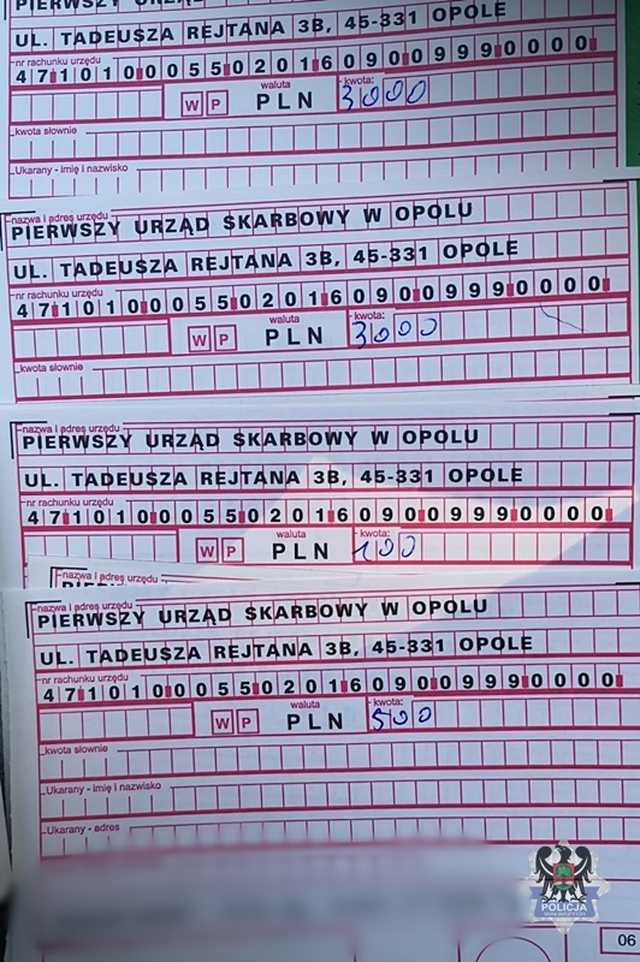 PIERWSZY URZĄD
UL. TADEUSZA REJTANA 3B, 45-331 OPOLE
nr rachunku urzędu
47 1010 0055 0201 6090 0999 0000
W P waluta PLN kwota: 3000
kwota słownie
Ukarany - imię i nazwisko
nazwa i adres urzędu
PIERWSZY URZĄD SKARBOWY W OPOLU
UL. TADEUSZA REJTANA 3B, 45-331 OPOLE
nr rachunku urzędu
47 1010 0055 0201 6090 0999 0000
W P waluta PLN kwota: 3000
kwota słownie
nazwa i adres urzędu
PIERWSZY URZĄD SKARBOWY W OPOLU
UL. TADEUSZA REJTANA 3B, 45-331 OPOLE
nr rachunku urzędu
47 1010 0055 0201 6090 0999 0000
W P waluta PLN kwota: 100
nazwa i adres urzędu
nazwa i adres urzędu
PIERWSZY URZĄD SKARBOWY W OPOLU
UL. TADEUSZA REJTANA 3B, 45-331 OPOLE
nr rachunku urzędu
47 1010 0055 0201 6090 0999 0000
W P waluta PLN kwota: 500
kwota słownie
Ukarany - imię i nazwisko
Ukarany - adres
POLICJA
06